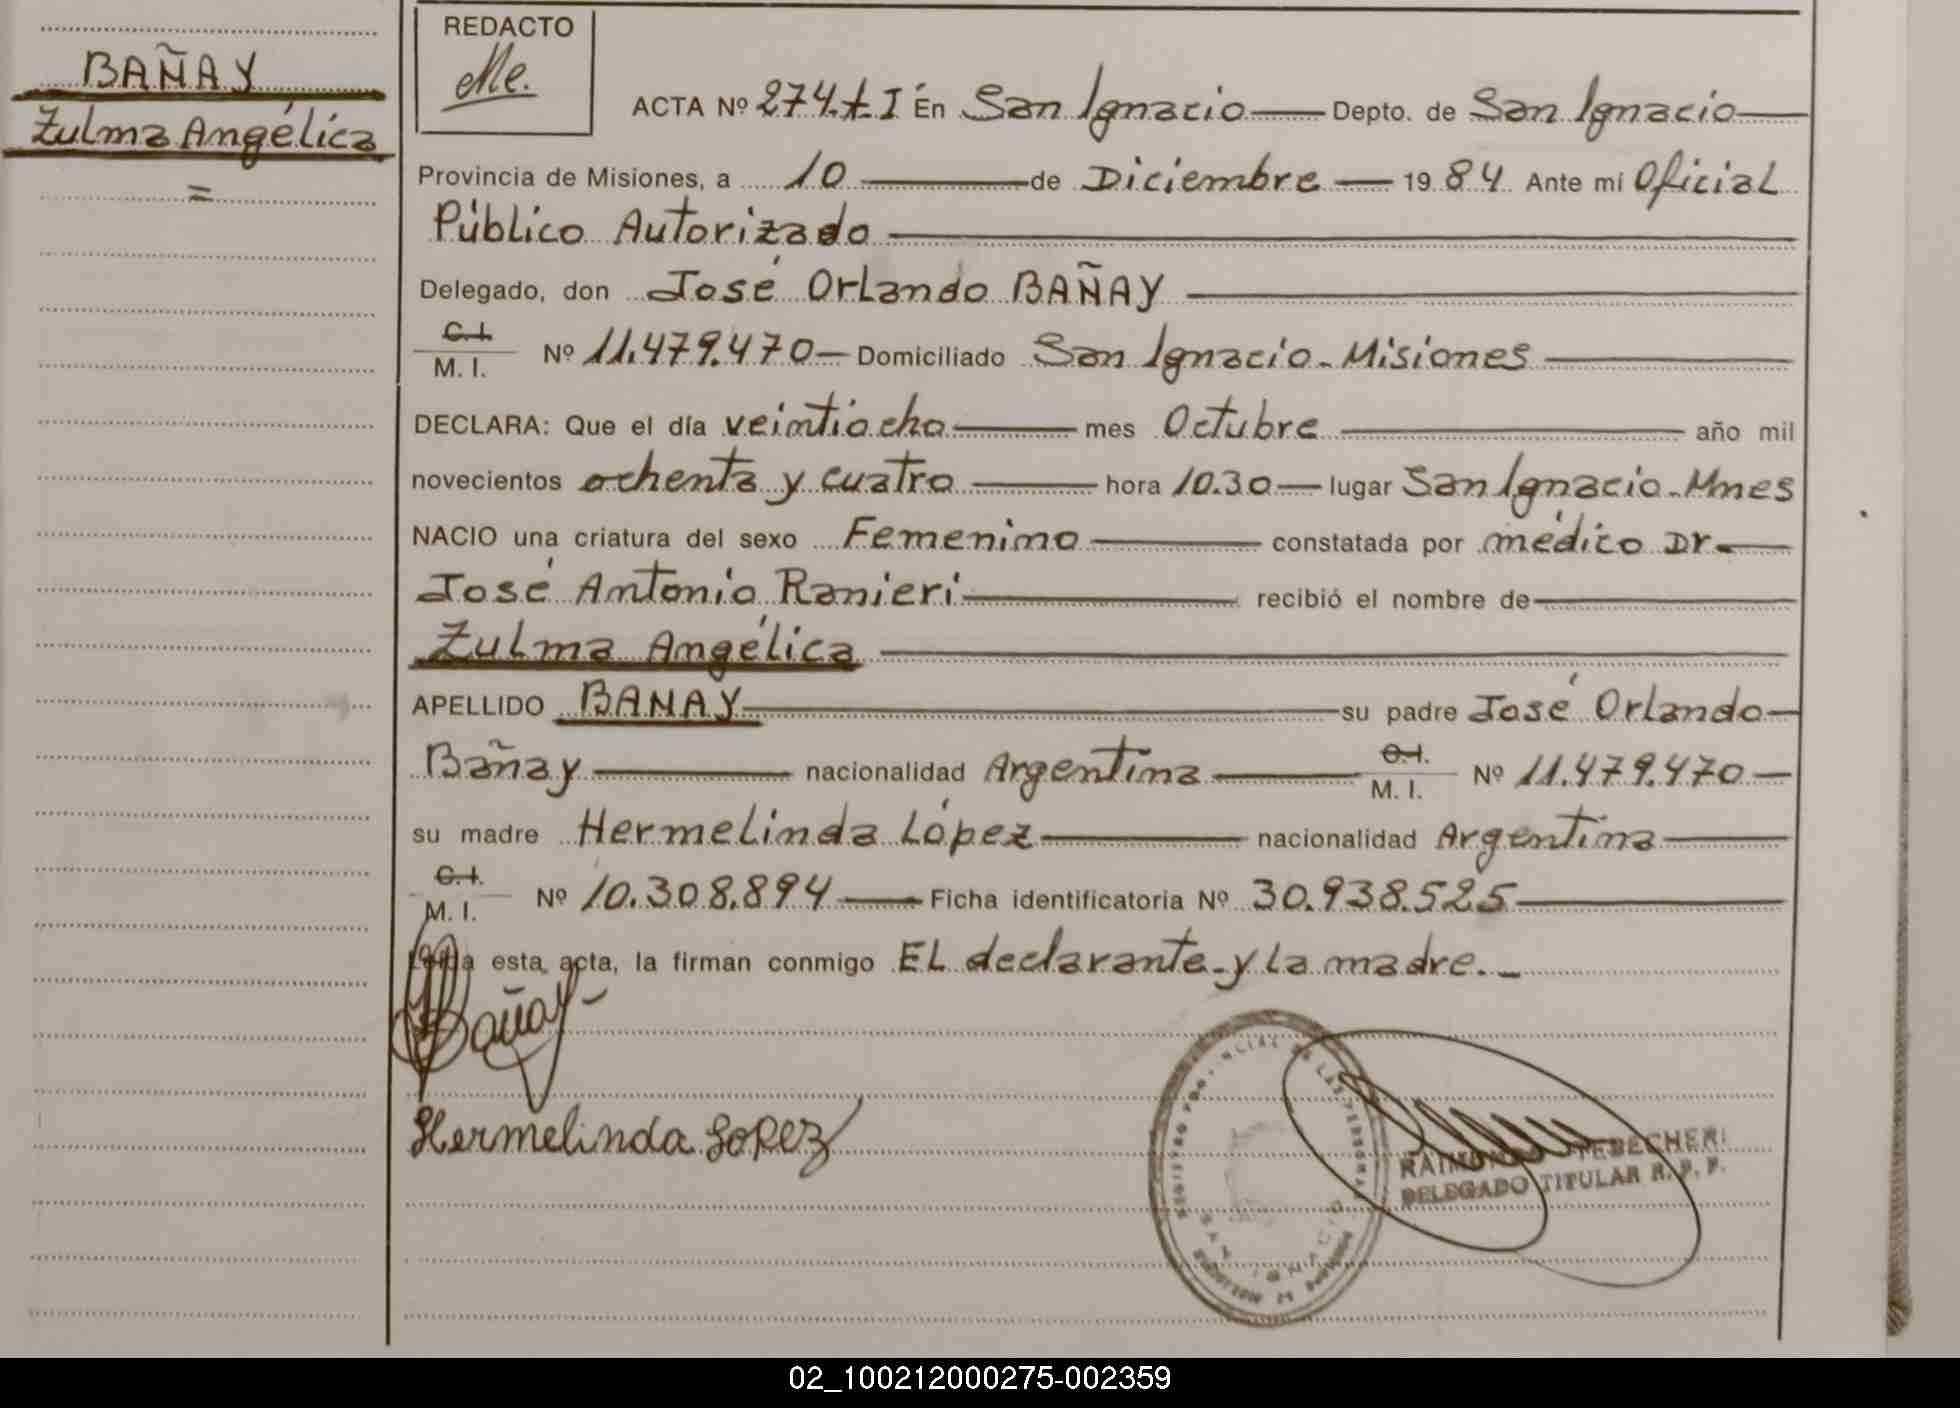 BAÑAY
Zulma Angélica
=
REDACTO
Me.
ACTA Nº 274. t. I En San Ignacio Depto. de San Ignacio
Provincia de Misiones, a 10 de Diciembre 19 84 Ante mi Oficial
Público Autorizado
Delegado, don José Orlando BAÑAY
C.I.
M. I. Nº 11.479.470 Domiciliado San Ignacio - Misiones
DECLARA: Que el día veintiocho mes Octubre año mil
novecientos ochenta y cuatro hora 10.30 lugar San Ignacio - Mnes
NACIO una criatura del sexo Femenino constatada por médico Dr.
José Antonio Ranieri recibió el nombre de
Zulma Angélica
APELLIDO BANAY su padre José Orlando
Bañay nacionalidad Argentina C.I. M. I. Nº 11.479.470
su madre Hermelinda López nacionalidad Argentina
C.I.
M. I. Nº 10.308.894 Ficha identificatoria Nº 30.938.525
Leída esta acta, la firman conmigo EL declarante y La madre.
Bañay
Hermelinda Lopez
REGISTRO PROVINCIAL DE LAS PERSONAS
SAN IGNACIO
TEBECHERI
DELEGADO TITULAR R. P. P.
02_100212000275-002359